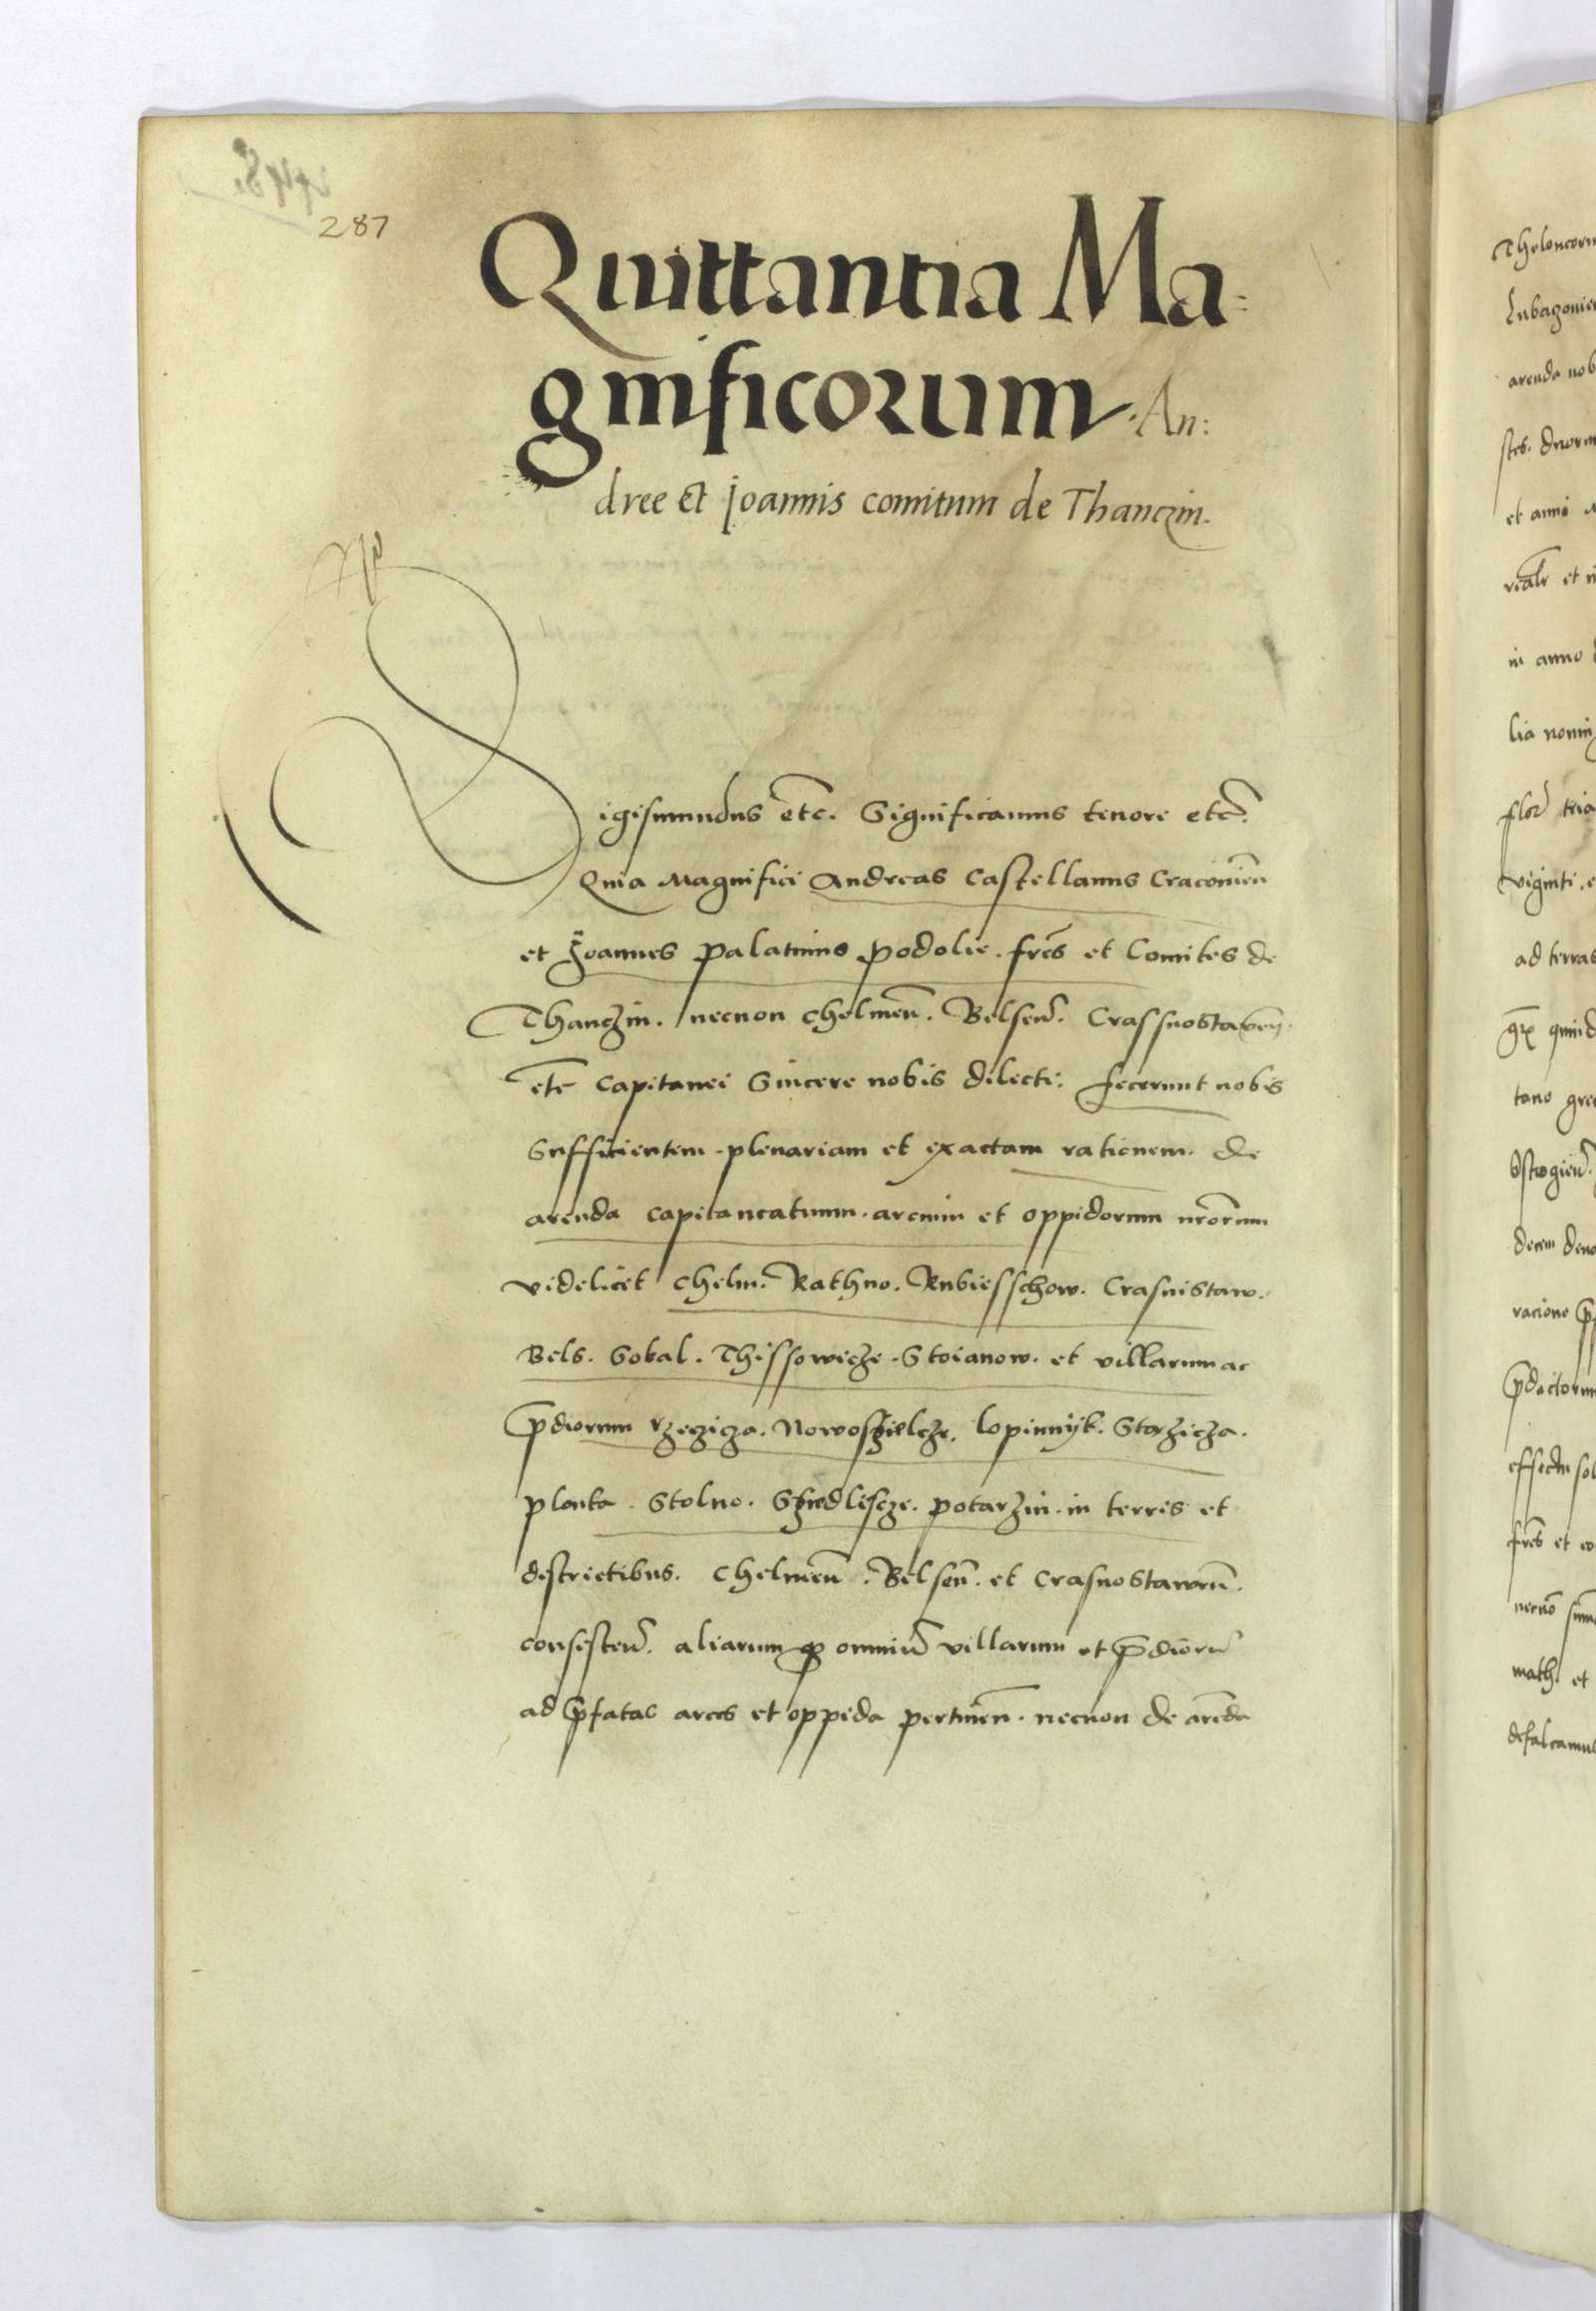 287
Quittantia Ma:
gnificorum. An:
dree et Joannis comitum de Thanczin.
Sigismundus etc. Significamus tenore etc.
Quia Magnifici Andreas Castellanus Cracovieñ
et Joannes palatinus podolie. fres et Comites de
Thanczin. necnon chelmeñ. Belseñ. Crassnostavieñ.
etc capitanei Sincere nobis dilecti: fecerunt nobis
Sufficientem. plenariam et exactam rationem. de
arenda capitaneatuum. arcium et oppidorum nrorum
videlicet chelm. Rathno. Rubiesschow. Crasnistaw.
Bels. Sokal. Thissowicze. Stoianow. et villarum ac
pdiorum rzeczicza. Nowoszielcze. lopinnyk. Starzicza.
planka. Stolno. Sziedliscze. potarzin. in terris et
districtibus. chelmeñ. Belseñ. et crasnostawieñ.
consisteñ. aliarum qz omniu villarum et pdioru
ad pfatas arces et oppida pertineñ. necnon de areda
Theloneorum
arenda nob
et anni
realr et
in anno
lia nomin
flor tria
viginti. e
ad terras
tano gre
decem
racione
pdictorum
fres et
math. et
defalcamus